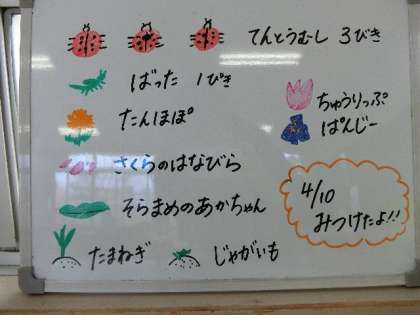 てんとうむし 3びき
ばった 1ぴき
たんぽぽ
ちゅうりっぷ
ぱんじー
さくらのはなびら
そらまめのあかちゃん
4/10
みつけたよ!!
たまねぎ
じゃがいも